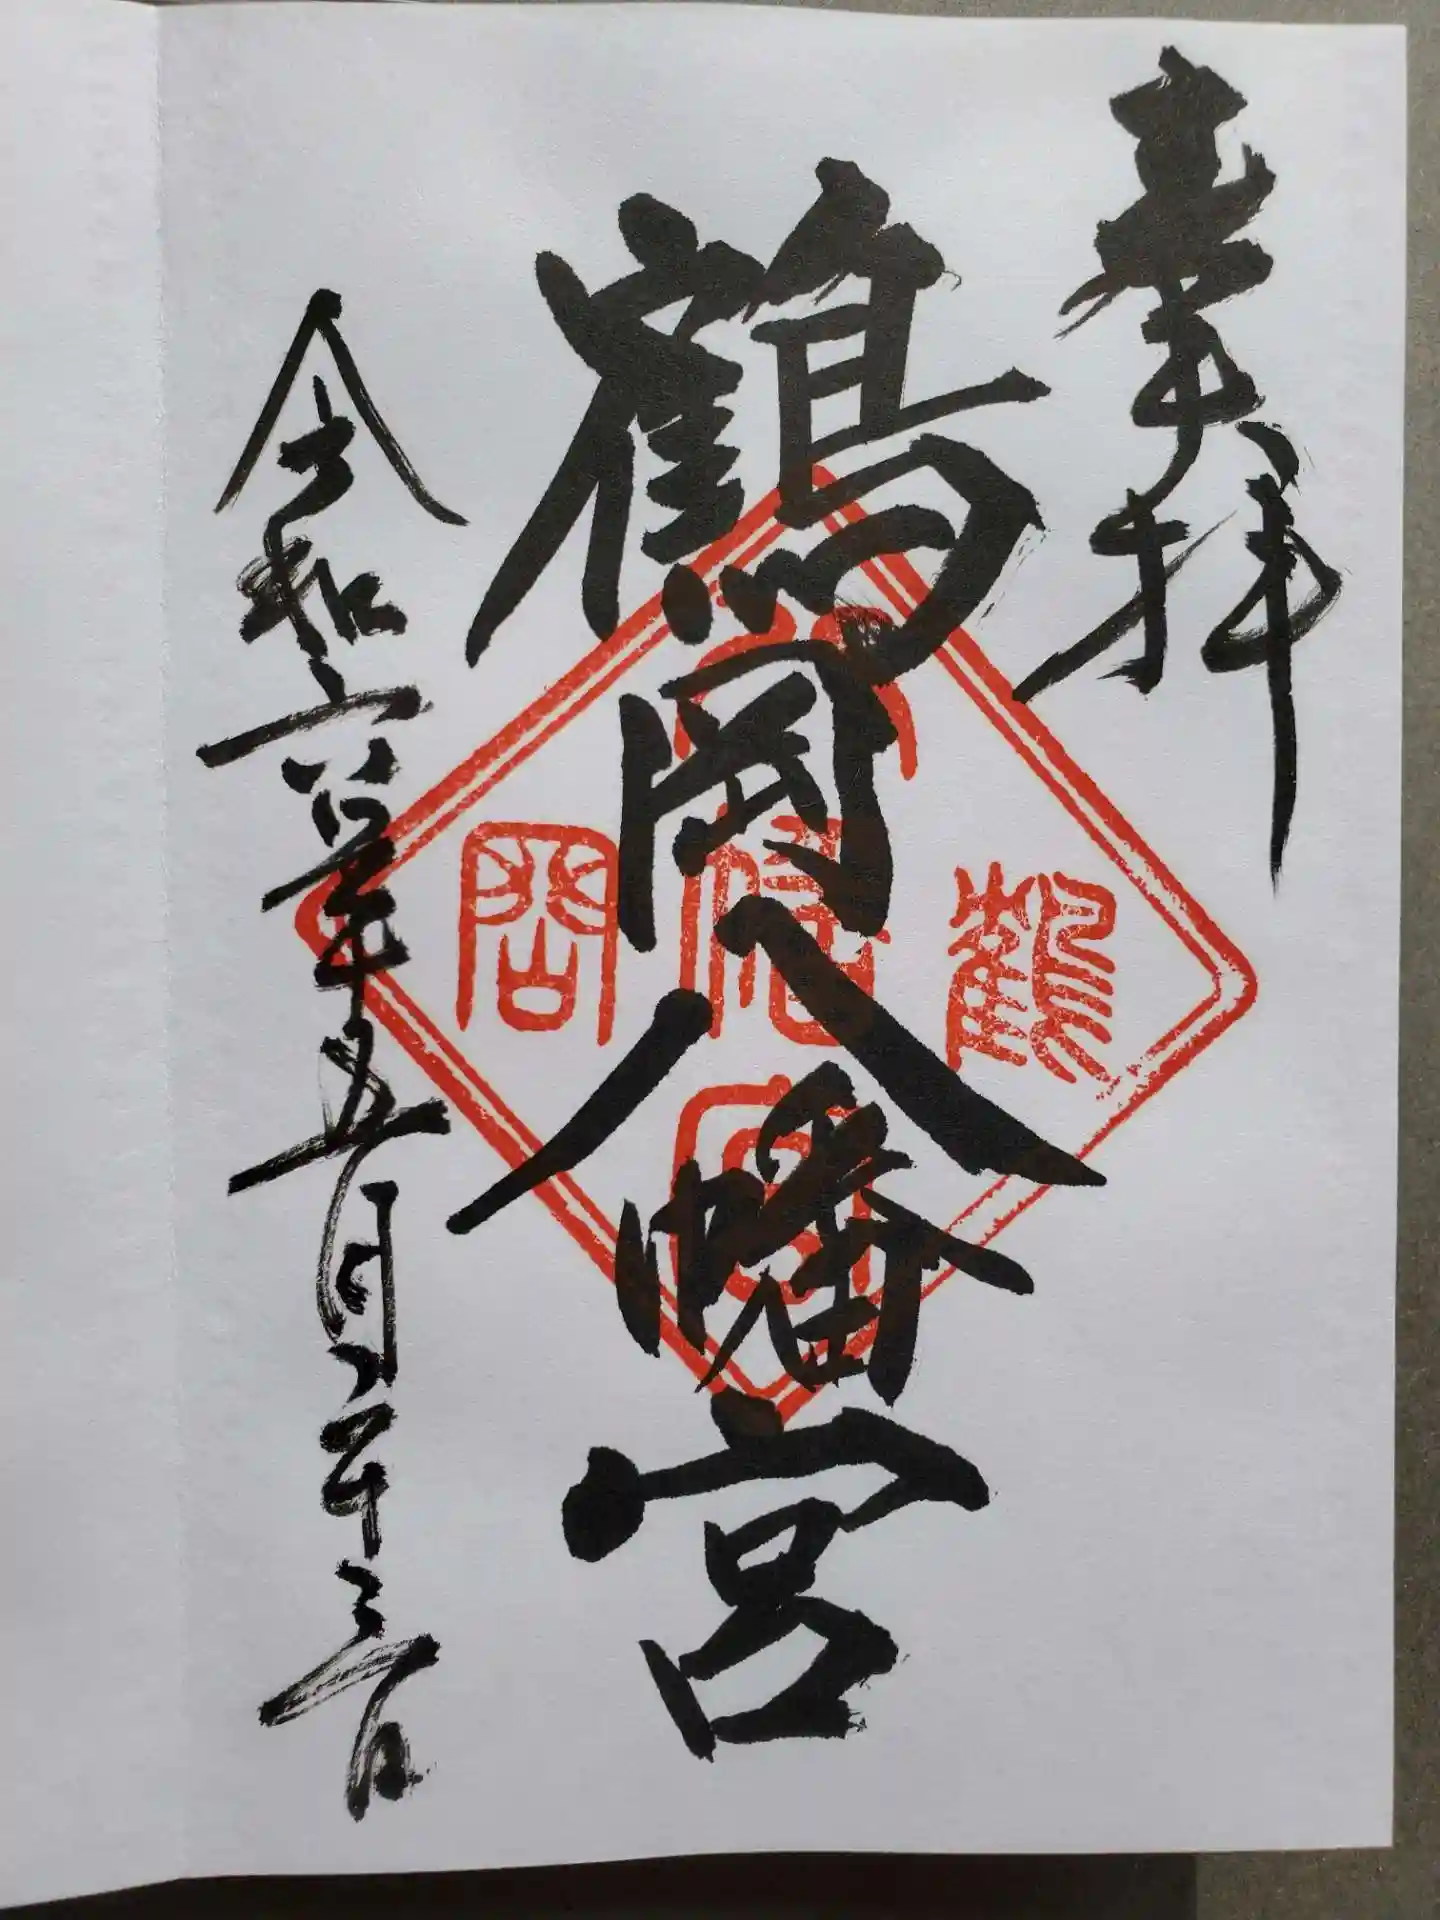 奉拝
鶴岡八幡宮
令和六年五月二十三日
鶴
岡
宮